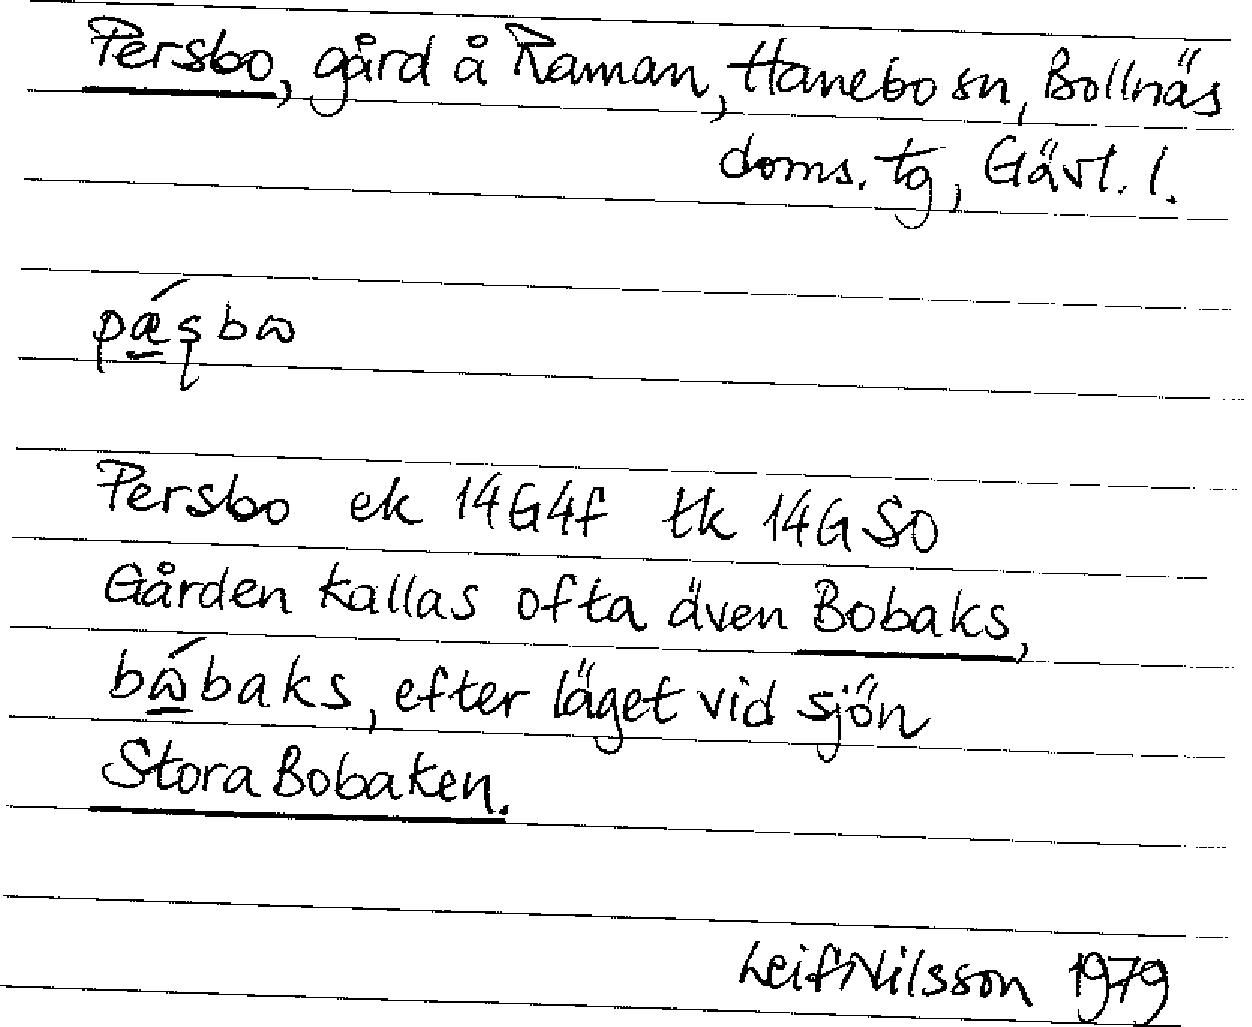 Persbo, gård å Raman, Hanebo sn, Bollnäs
doms. tg, Gävl. l.
pǽʂbɷ
Persbo ek 14G4f tk 14G SO
Gården kallas ofta även Bobaks,
bɷ́baks, efter läget vid sjön
Stora Bobaken.
Leif Nilsson 1979